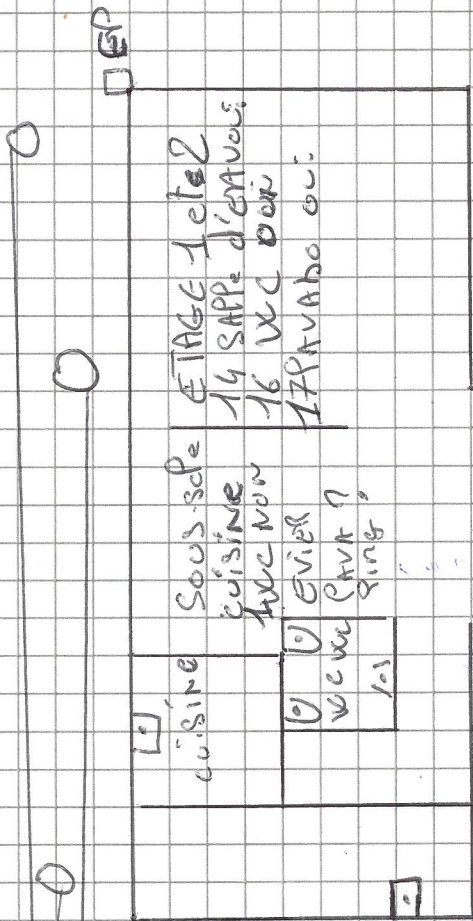 EP
ETAGE 1 et 2
14 SAPPe d'EAU oui
16 WC oui
17 LAVABO oui
SOUS-SOL
CUISINE
1 WC NON
EVIER
LAVA
CUISINE
WC WC